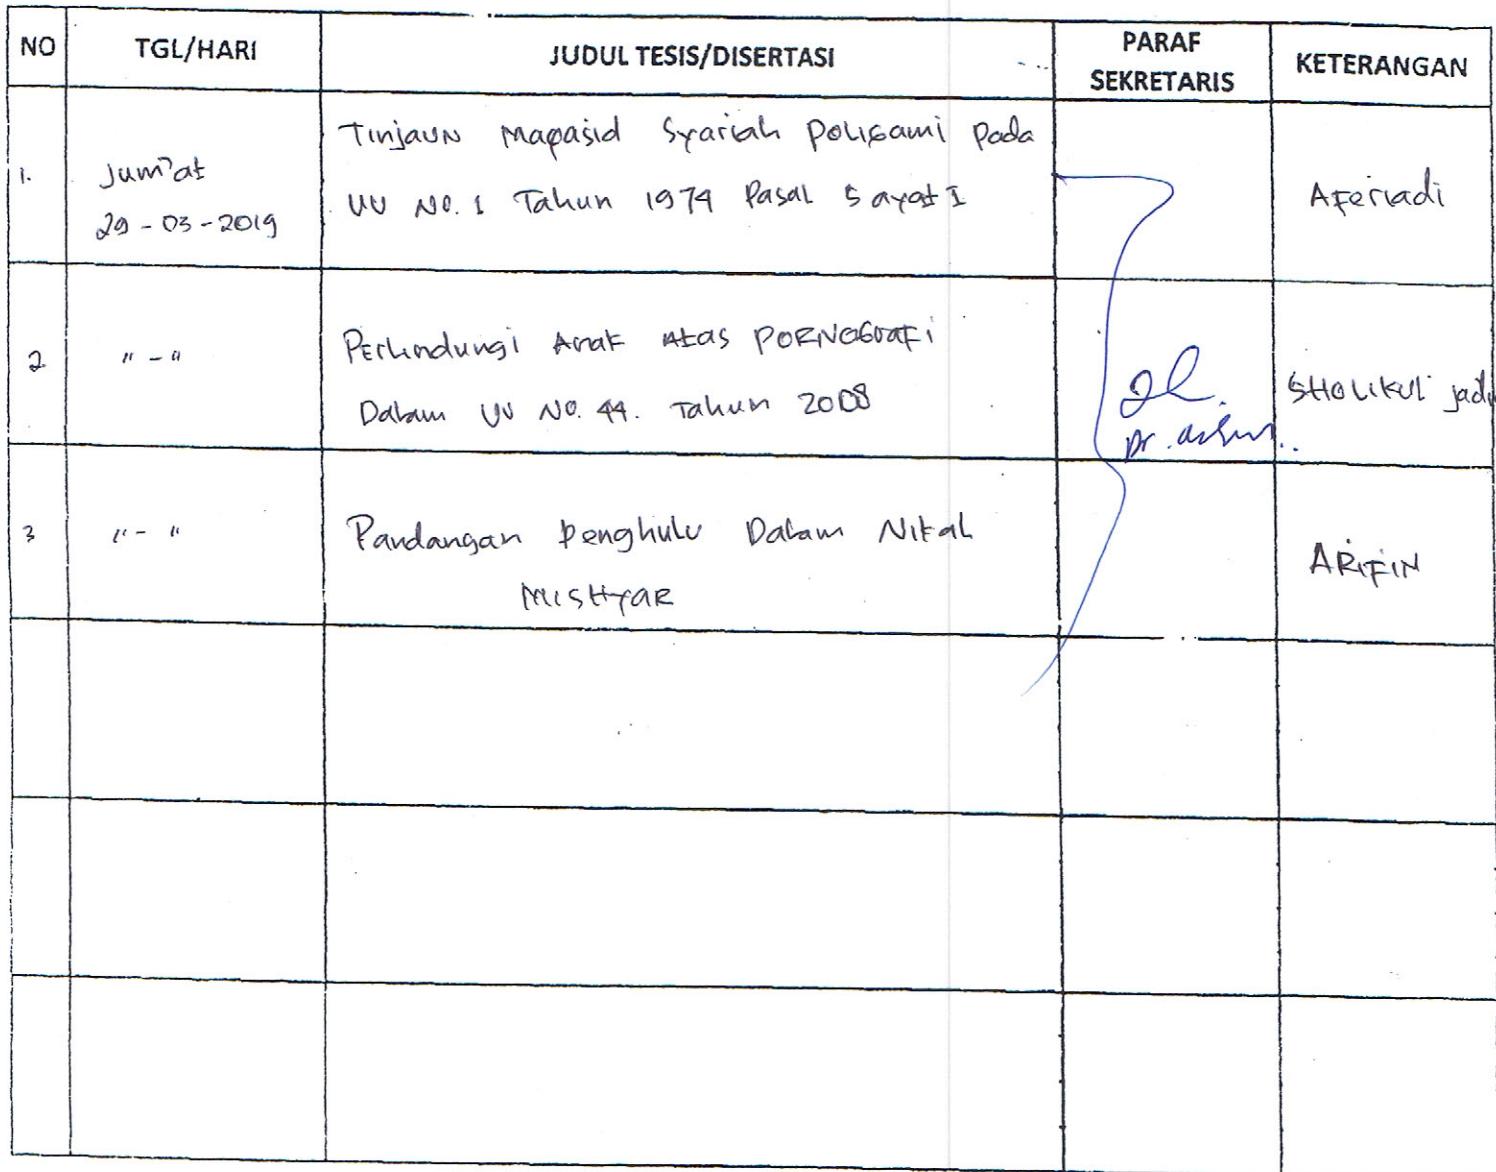 NO TGL/HARI JUDUL TESIS/DISERTASI PARAF SEKRETARIS KETERANGAN
1. Jum'at Tinjaun Maqasid Syariah Poligami Pada
29-03-2019 UU No. 1 Tahun 1974 Pasal 5 ayat I Aferiadi
2. " - " Perlindungi Anak Atas PORNOGrafi
Dalam UU No. 44. Tahun 2008 SHOLIKUL jadi
Dr.
3 " - " Pandangan Penghulu Dalam Nikah
MISHYAR ARIFIN